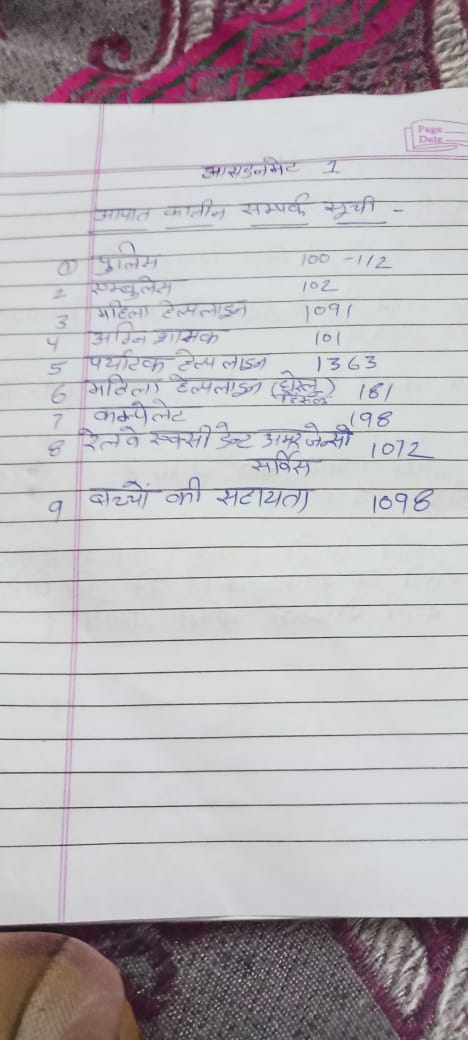 Page
Date
असाइनमेंट 1
आपात कालीन सम्पर्क सूची -
① पुलिस 100 - 112
2 एम्बुलेंस 102
3 महिला हेल्पलाइन 1091
4 अग्नि शामक 101
5 पर्याटक हेल्प लाइन 1363
6 महिला हेल्पलाइन (घरेलू हिंसक) 181
7 कम्पलेट 198
8 रेलवे एक्सीडेन्ट अमरजेन्सी 1072
सर्विस
9 बाच्चों की सहायता 1098